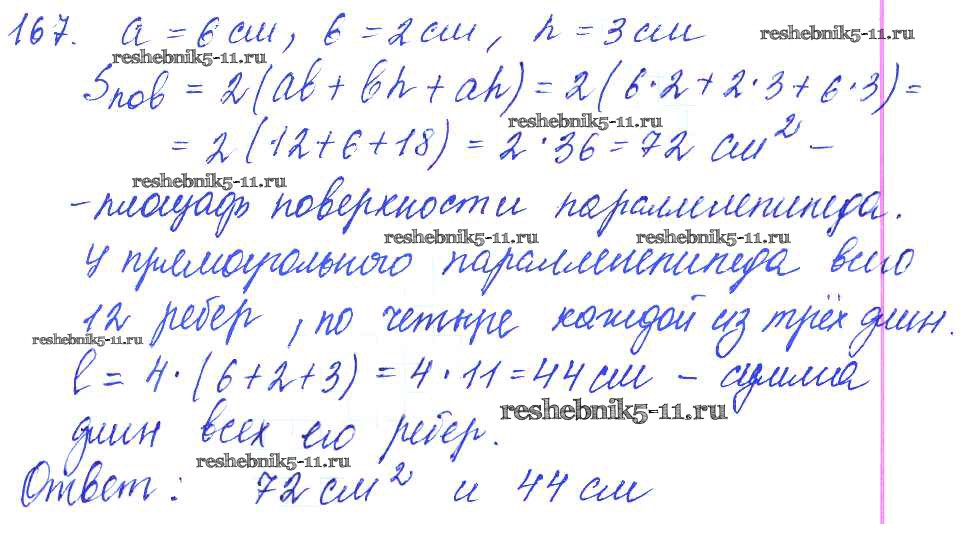 167. a = 6 см, b = 2 см, h = 3 см
reshebnik5-11.ru
reshebnik5-11.ru
Sпов = 2(ab + bh + ah) = 2(6·2 + 2·3 + 6·3) =
reshebnik5-11.ru
= 2(12 + 6 + 18) = 2·36 = 72 см² –
reshebnik5-11.ru
– площадь поверхности параллелепипеда.
reshebnik5-11.ru
reshebnik5-11.ru
У прямоугольного параллелепипеда всего
12 ребер, по четыре каждой из трёх длин.
reshebnik5-11.ru
l = 4·(6 + 2 + 3) = 4·11 = 44 см – сумма
reshebnik5-11.ru
длин всех его ребер.
reshebnik5-11.ru
Ответ: 72 см² и 44 см